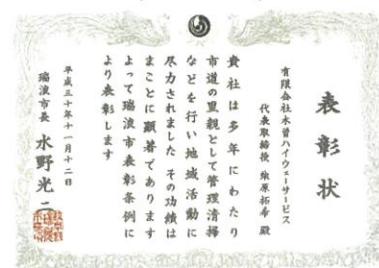 表彰状
有限会社木曽ハイウェーサービス
代表取締役 篠原拓希 殿
貴社は多年にわたり
市道の里親として管理清掃
などを行い地域活動に
尽力されました その功績は
まことに顕著であります
よって瑞浪市表彰条例に
より表彰します
平成三十年十一月十二日
瑞浪市長 水野光二